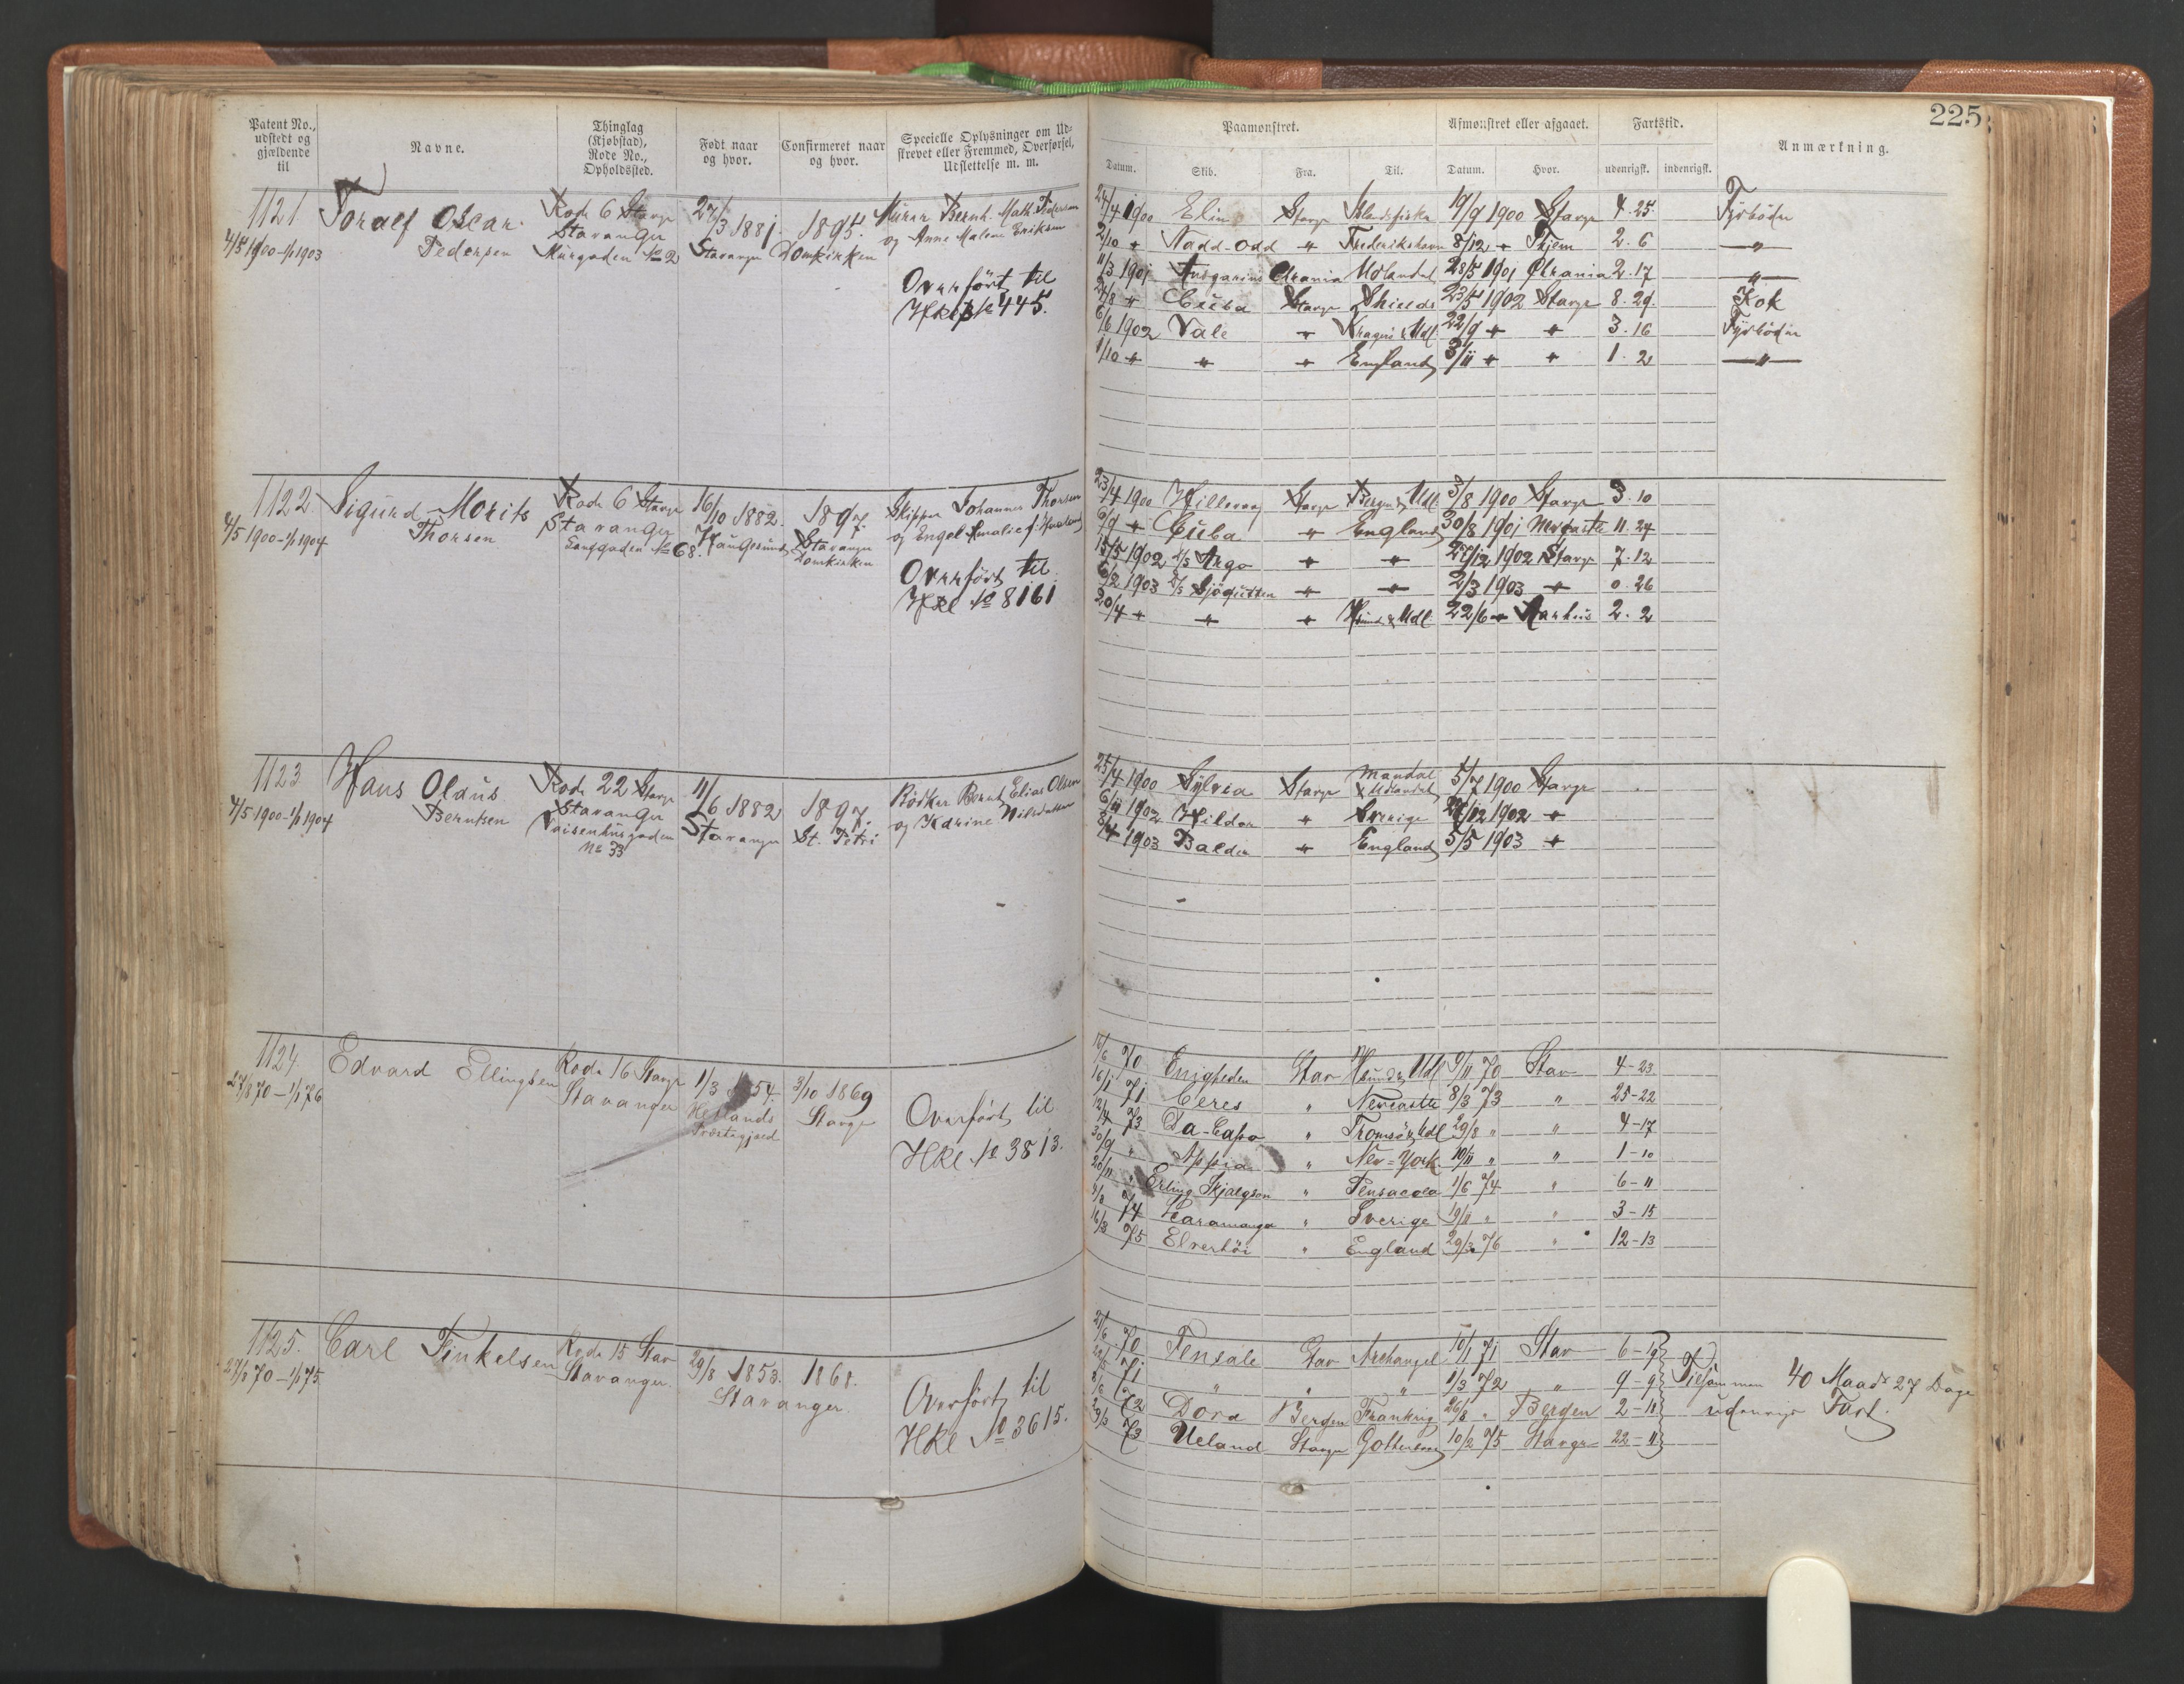 225
Patent No., udstedt og gjældende til
Navne.
Thinglag (Kjøbstad), Rode No., Opholdssted.
Født naar og hvor.
Confirmeret naar og hvor.
Specielle Oplysninger om Udskrevet eller Fremmed, Overførsel, Udslettelse m. m.
Paamønstret.
Afmønstret eller afgaaet.
Fartstid.
Anmærkning.
Datum. Skib. Fra. Til. Datum. Hvor. udenrigsk. indenrigsk.
1121
4/5 1900-1/1 1903
Toralf Oscar
Pedersen
Rode 6 Stavgr
Stavanger
Murgaden No 2
27/3 1881
Stavanger
1895.
Domkirken
Murer Bernh. Math. Pedersen
og Anne Malene Eriksen
Overført til
Hkl No 445.
24/4 1900 Elin Stavgr Islandsfiske 19/9 1900 Stavgr 4. 25. Fyrbøder
2/10 " Nadd-Odd " Frederikshavn 8/12 " Hjem 2. 6 "
11/3 1901 Ansgarius Chrania Udlandet 28/5 1901 Chrania 2. 17 "
24/8 " Cuba Stavgr Shields 23/5 1902 Stavgr 8. 29. Kok
6/6 1902 Vale " Kragerø & Udl. 22/9 " " 3. 16 Fyrbøder
1/10 " " " England 3/11 " " 1. 2 "
1122
4/5 1900-1/1 1904
Sigurd Morits
Thorsen
Rode 6 Stavgr
Stavanger
Langgaden No 68.
16/10 1882.
Haugesund
1897.
Stavanger
Domkirken
Skipper Johannes Thorsen
og Engel Amalie f.
Overført til
Hkl No 8161
23/4 1900 Stavgr Bergen & Udl. 3/8 1900 Stavgr 3. 10
6/9 " Cuba " England 30/8 1901 Newcastle 11. 24
15/5 1902 D/S Argo " " 27/12 1902 Stavgr 7. 12
6/2 1903 D/S Sjøgutten " " 2/3 1903 " 0. 26
20/4 " " " Hsund & Udl. 22/6 " Aarhus 2. 2
1123
4/5 1900-1/1 1904
Hans Olaus
Berntsen
Rode 22 Stavgr
Stavanger
Vaisenhusgaden
No 33
11/6 1882
Stavanger
1897.
St. Petri
Bødker Bernt Elias Olsen
og Karine Nilsdatter
25/4 1900 Sylvia Stavgr Mandal & Udlandet 5/7 1900 Stavgr
6/11 1902 Hildor " Sverige 1902 "
1903 Balder " England 5/5 1903 "
1124.
27/8 70-1/1 76
Edvard Ellingsen
Rode 16 Stavgr
Stavanger
1/3 1854.
Hetlands
Præstegjeld
3/10 1869
Stavgr
Overført til
Hkl No 3813.
70 Enigheden Stav Hsund & Udl 9/11 70 Stav 4-23
71 Ceres " Newcastle 8/3 73 " 25-22
12/4 73 Da-Capo " Tromsø & Udl 29/8 " " 4-17
30/9 " Appia " New-York 10/11 " " 1-10
20/11 " Erling Skjalgson " Pensacola 1/6 74 " 6-11
74 Haramanga " Sverige 19/11 " " 3-15
16/3 75 Elverhøi " England 29/3 76 " 12-13
1125.
27/8 70-1/1 75
Carl Finkelsen
Rode 15 Stav
Stavanger.
29/8 1853.
Stavanger.
1868.
Overført til
Hkl No 3615.
70 Fensale Stav Archangel 10/1 71 Stav 6-19
71 " " " 1/3 72 " 9-9
72 Dora Bergen Frankrig 26/8 " Bergen 2-18
73 Ueland Stavgr Gottenborg 10/2 75 Stavgr 22-11
Tilsammen 40 Maadr 27 Dage
udenrigs Fart.